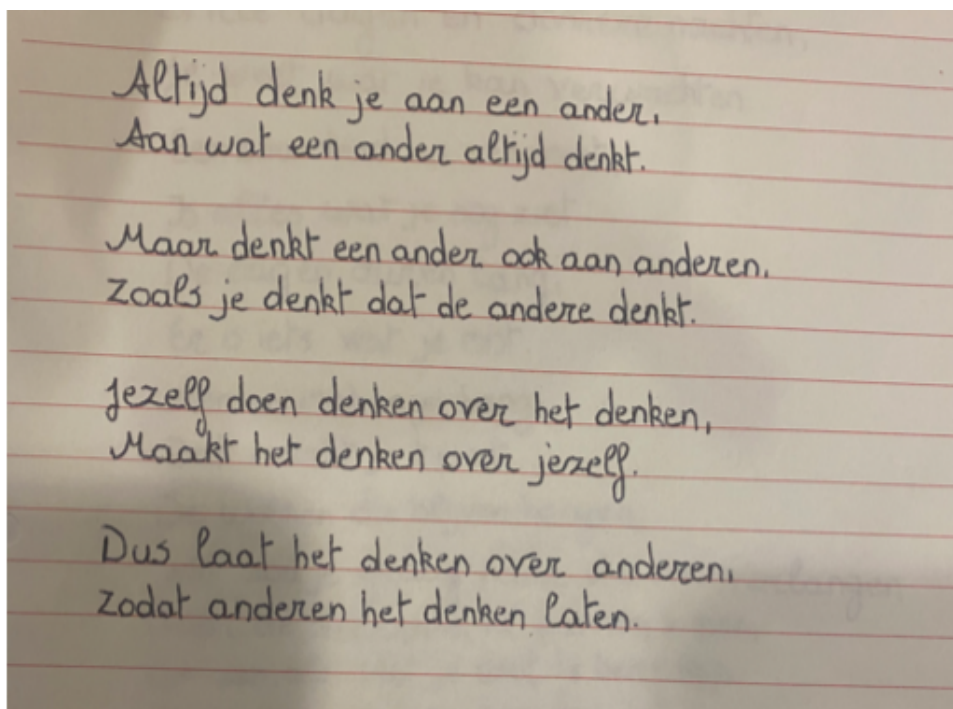 Altijd denk je aan een ander,
Aan wat een ander altijd denkt.
Maar denkt een ander ook aan anderen,
Zoals je denkt dat de andere denkt.
Jezelf doen denken over het denken,
Maakt het denken over jezelf.
Dus laat het denken over anderen,
Zodat anderen het denken laten.